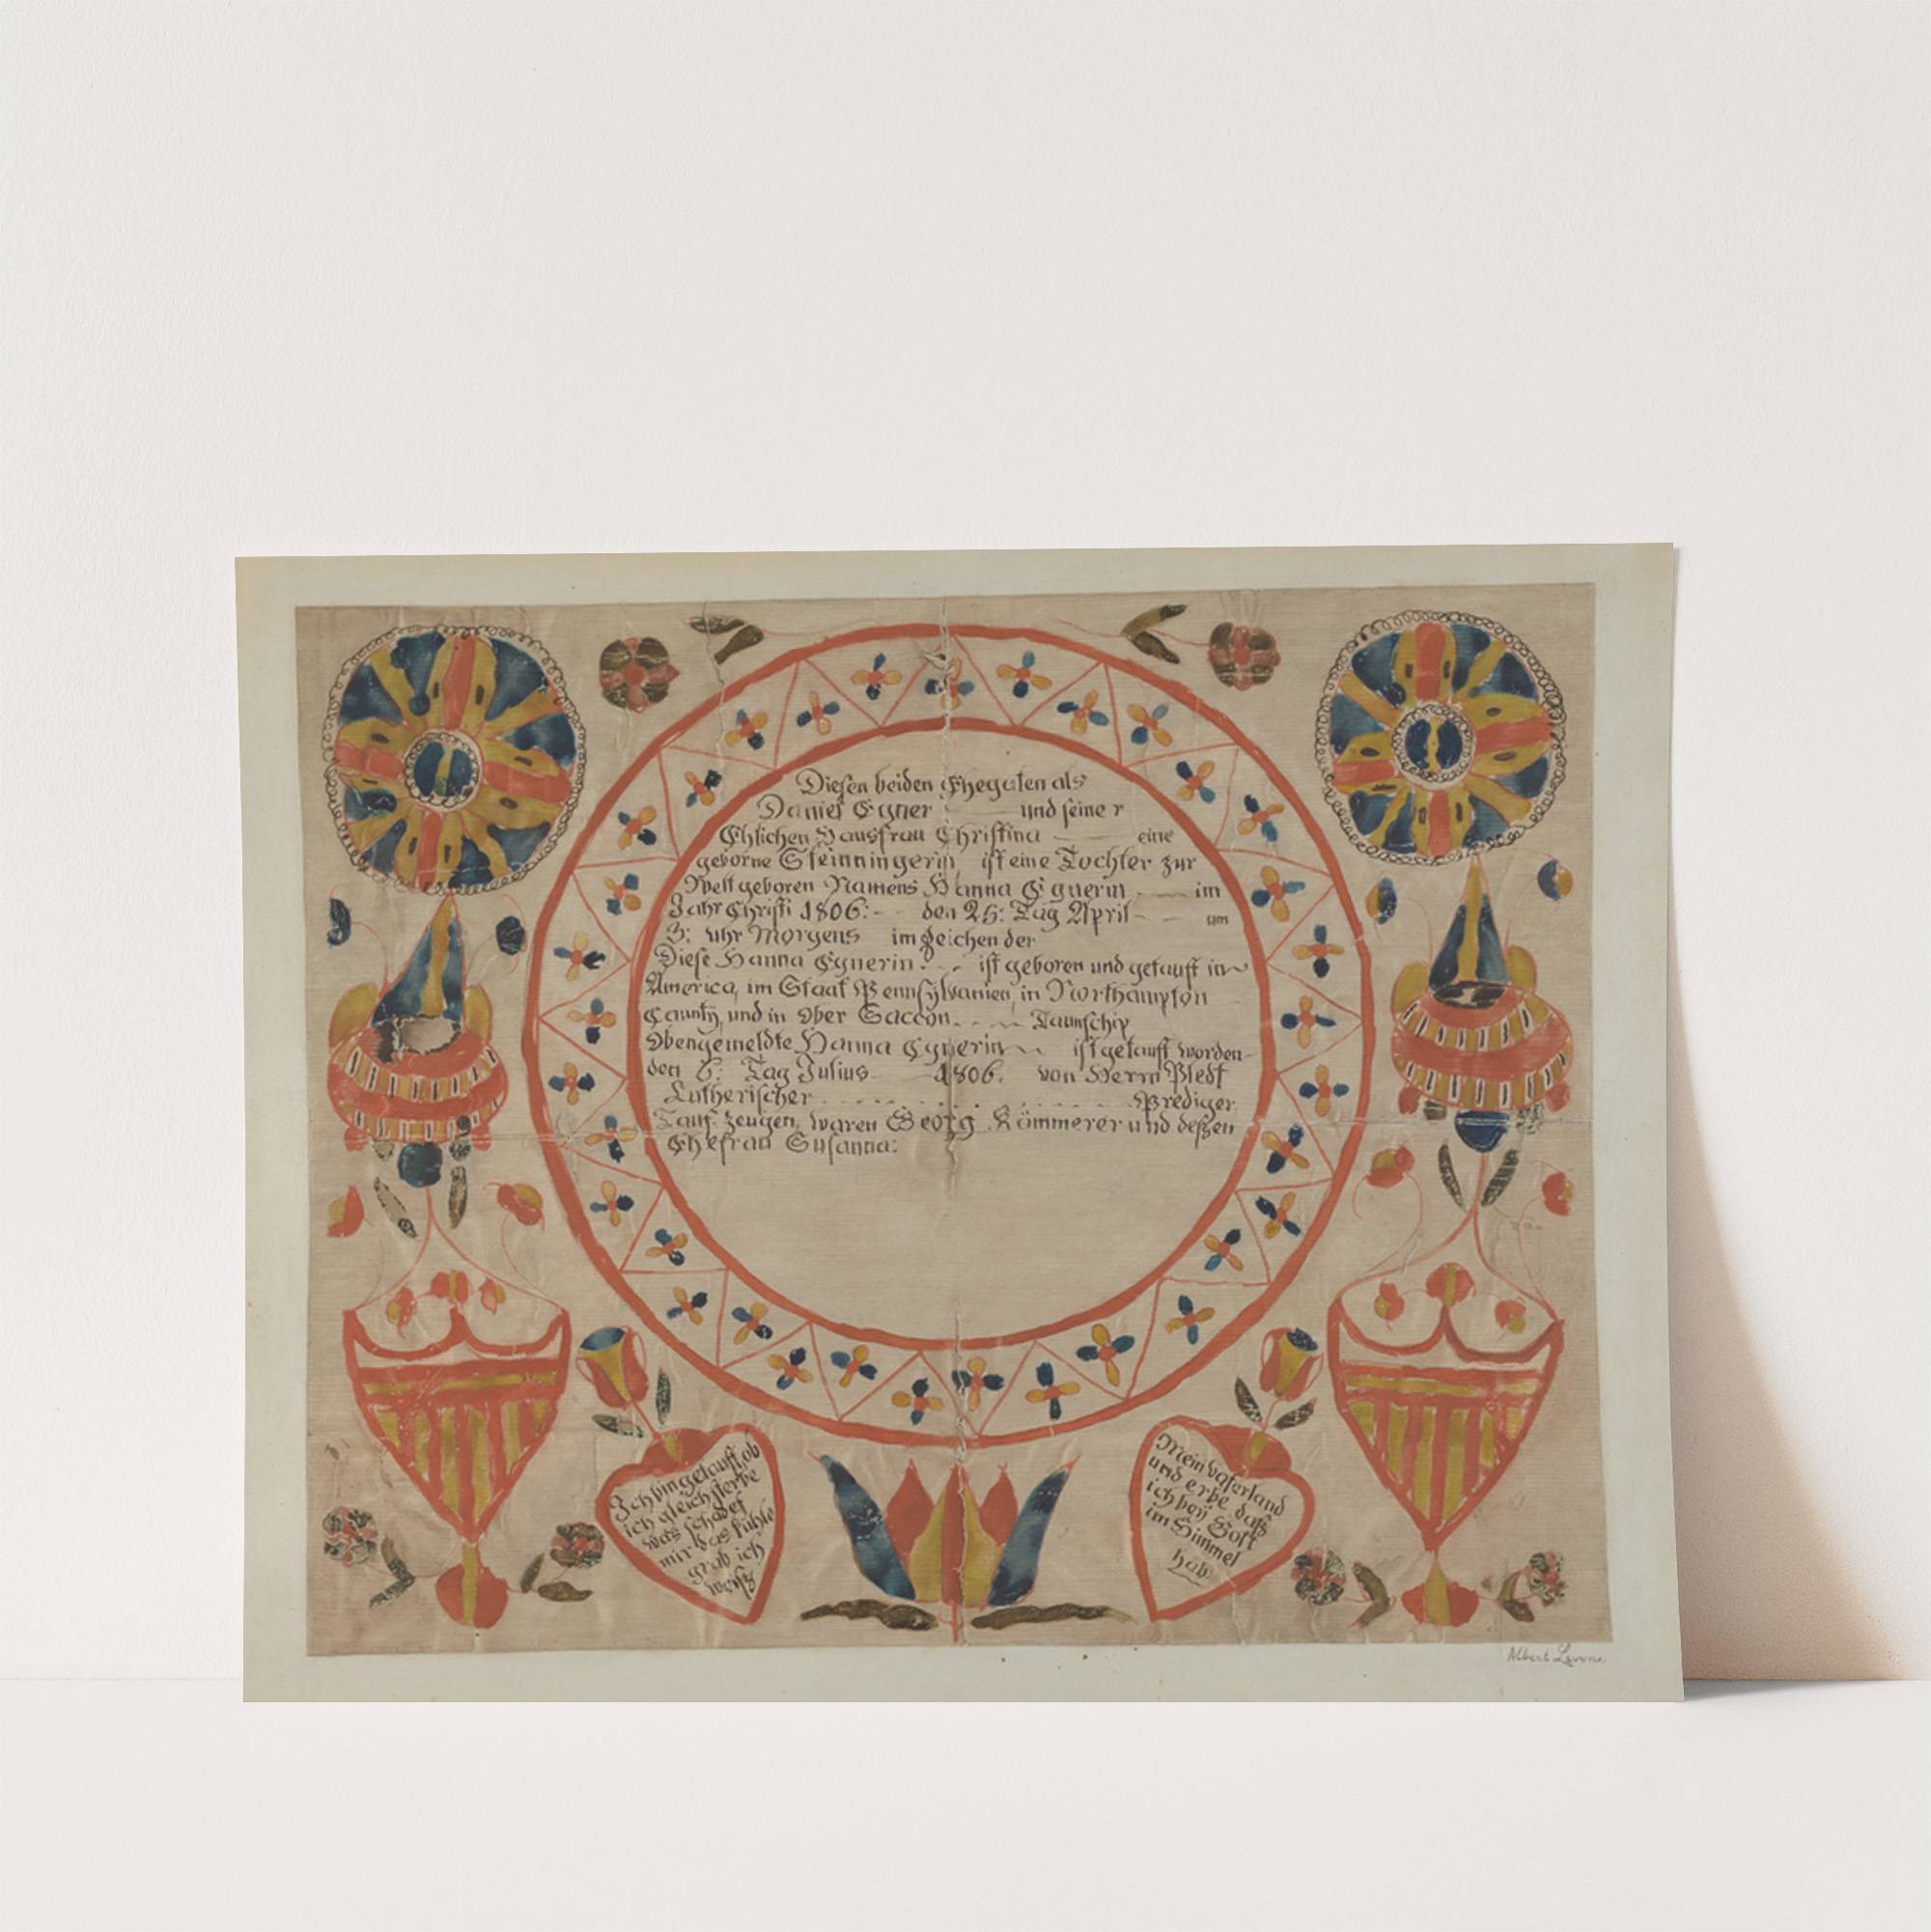 Diesen beiden Ehegaten als
Daniel Egner und seiner
Ehlichen Hausfrau Christina eine
geborne Steinningerin ist eine Tochter zur
Welt geboren Namens Hanna Egnerin im
Jahr Christi 1806: den 25: Tag April um
3: uhr Morgens im Zeichen der
Diese Hanna Egnerin ist geboren und getauft in
America, im Staat Pennsylvanien, in Northampton
Caunty, und in Ober Saccon Taunschip
Obengemeldte Hanna Egnerin ist getauft worden
den 6: Tag Julius 1806. von Herrn
Lutherischer Prediger
Tauf-zeugen, waren Georg Kämmerer und deßen
Ehefrau Susanna:
Ich bin getauft, ob
ich gleich sterbe
was schadet
mir das kühle
grab ich
weiß
Mein vaterland
und erbe daß
ich bey Gott
im Himmel
hab.
Albert Levone